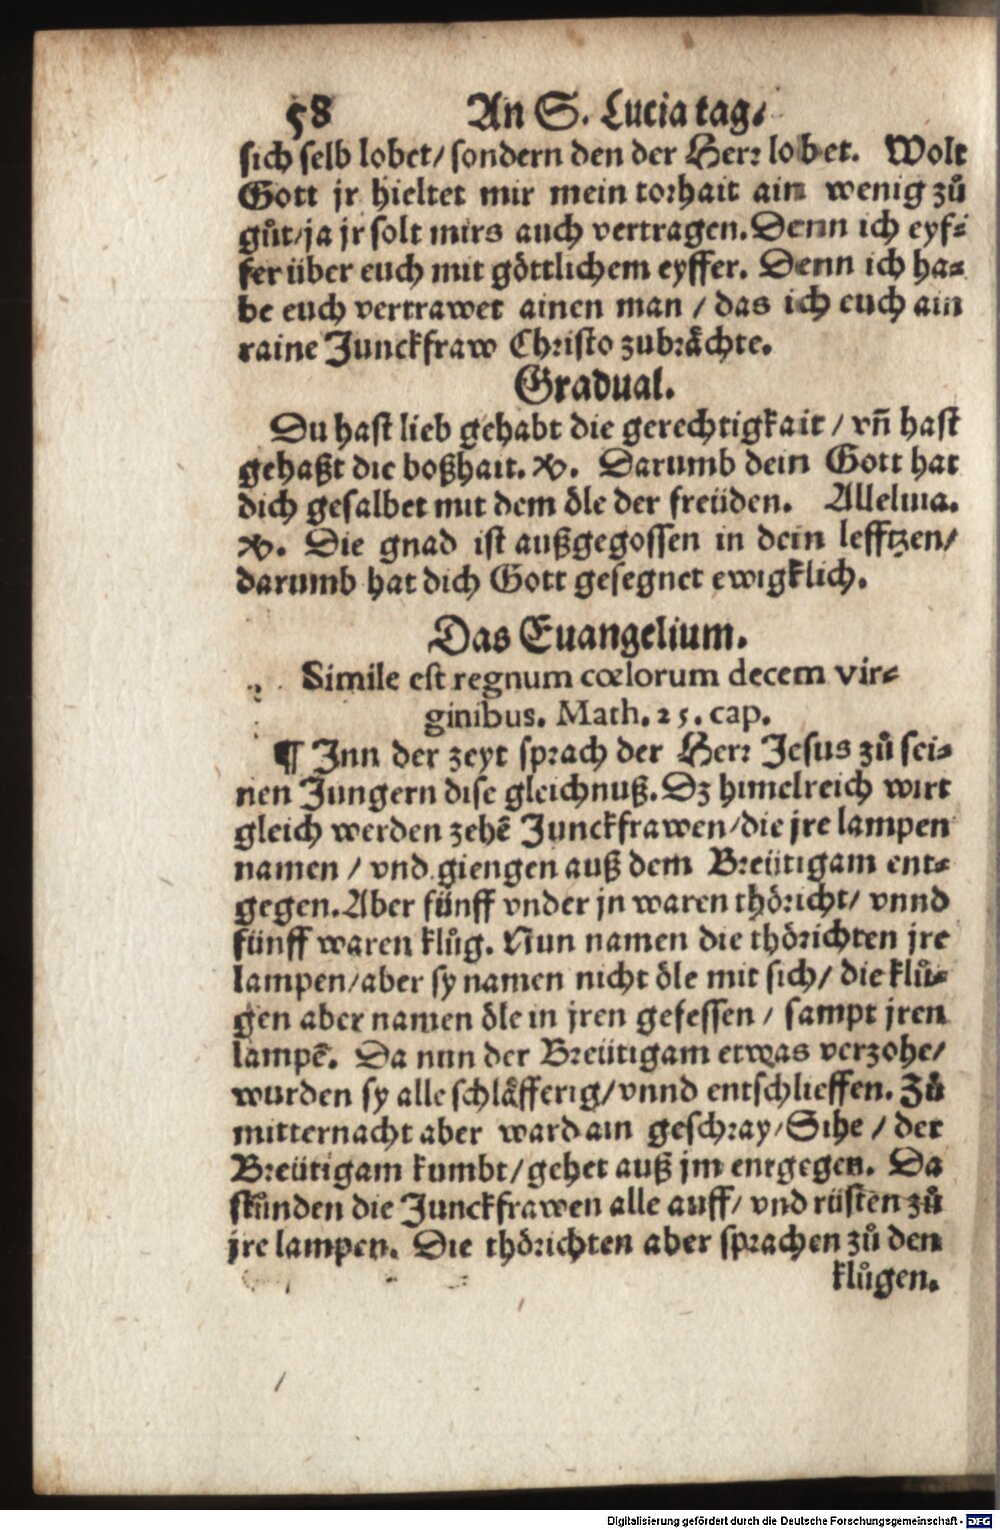 58 An S. Lucia tag/
sich selb lobet/ sondern den der Herr lobet. Wolt
Gott jr hieltet mir mein torhait ain wenig zů
gůt/ja jr solt mirs auch vertragen. Denn ich eyf-
fer über euch mit göttlichem eyffer. Denn ich ha-
be euch vertrawet ainen man / das ich euch ain
raine Junckfraw Christo zubrächte.
Gradual.
Du hast lieb gehabt die gerechtigkait / vñ hast
gehaßt die boßhait. ℣. Darumb dein Gott hat
dich gesalbet mit dem öle der freüden. Alleluia.
℣. Die gnad ist außgegossen in dein lefftzen/
darumb hat dich Gott gesegnet ewigklich.
Das Euangelium.
Simile est regnum cœlorum decem vir-
ginibus. Math. 25. cap.
¶ Inn der zeyt sprach der Herr Jesus zů sei-
nen Jungern dise gleichnuß. Dz himelreich wirt
gleich werden zehẽ Junckfrawen/die jre lampen
namen / vnd giengen auß dem Breütigam ent-
gegen. Aber fünff vnder jn waren thöricht/ vnnd
fünff waren klůg. Nun namen die thörichten jre
lampen/aber sy namen nicht öle mit sich/ die klů-
gen aber namen öle in jren gefessen / sampt jren
lampẽ. Da nun der Breütigam etwas verzohe/
wurden sy alle schläfferig/vnnd entschlieffen. Zů
mitternacht aber ward ain geschray/Sihe / der
Breütigam kumbt/gehet auß jm entgegen. Da
stůnden die Junckfrawen alle auff/ vnd rüsten zů
jre lampen. Die thörichten aber sprachen zů den
klůgen.
Digitalisierung gefördert durch die Deutsche Forschungsgemeinschaft - DFG